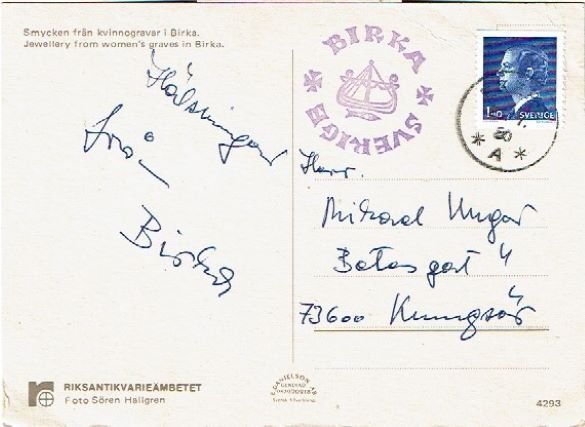 Smycken från kvinnogravar i Birka.
Jewellery from women's graves in Birka.
Hälsningar
från
Birka
BIRKA
SVERIGE
SVERIGE
80
A
Herr.
Mikael Ungar
4
73600 Kungsör
RIKSANTIKVARIEÄMBETET
Foto Sören Hallgren
E. DANIELSON AB
4293